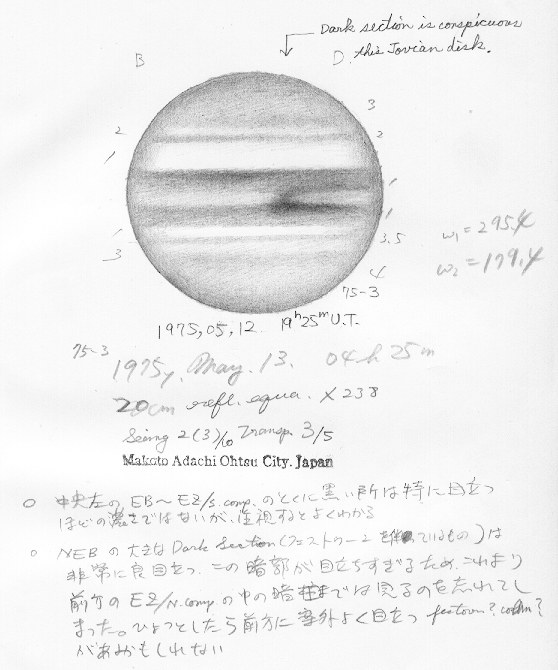 Dark section is conspicuous
D. this Jovian disk.
B
3
2
2
1
1
1
1
3
3.5
4
ω1 = 295.4
ω2 = 179.4
75-3
1975,05,12 19h25m U.T.
75-3
1975y. May. 13. 04h 25m
20cm refl. equa. × 238
Seeing 2(3)/10 Transp. 3/5
Makoto Adachi Ohtsu City. Japan
○ 中央左の EB〜EZ/s. comp. のとくに黒い所は特に目立つ
ほどの濃さではないが、注視するとよくわかる
○ NEB の大きな Dark Section (フェストゥーンを っているもの) は
非常に良目立つ. この暗部が目立ちすぎるため、これより
前方の EZ/N. comp. の中の暗 では見るのを忘れてし
まった。ひょっとしたら前方に意外よく目立つ festoon?
があるかもしれない